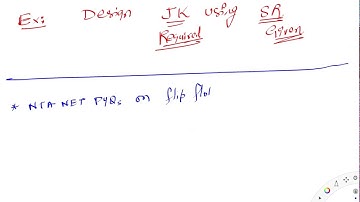 Ex: Design JK using SR
Required Given
* NTA NET PYQs on flip flol